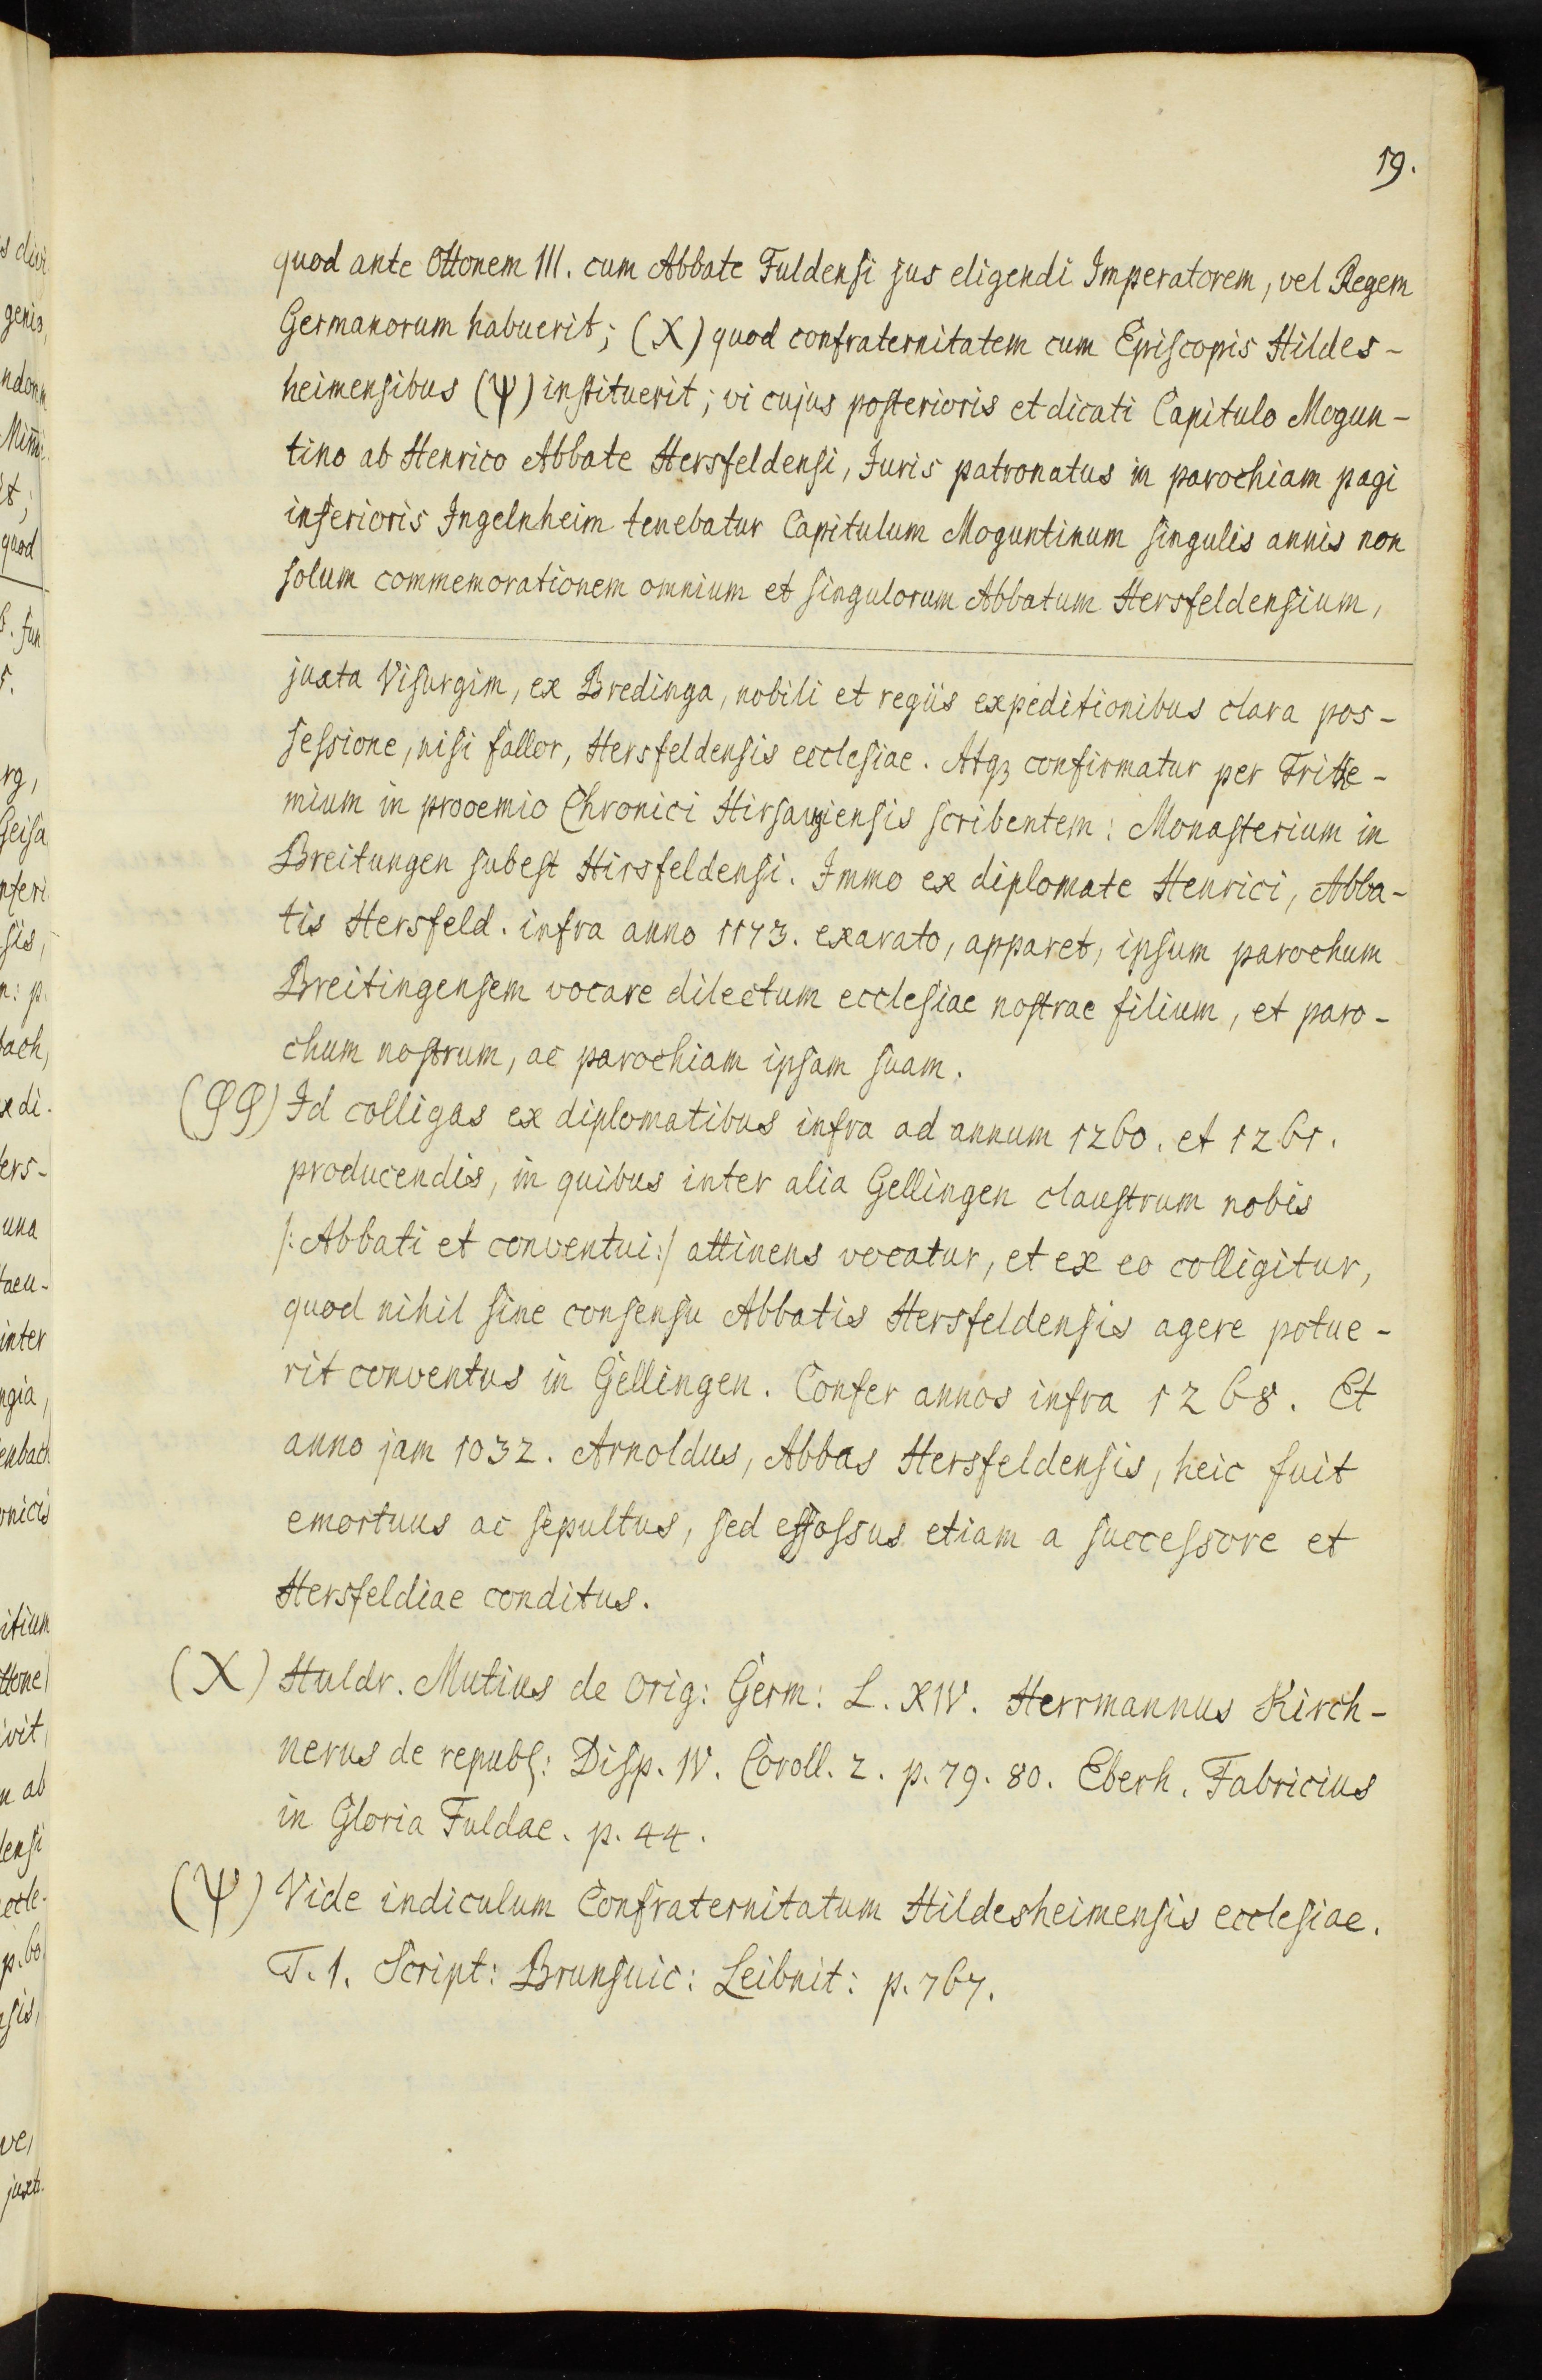 19.
quod ante Ottonem III. cum Abbate Fuldensi jus eligendi Imperatorem, vel Regem
Germanorum habuerit; (X) quod confraternitatem cum Episcopis Hildes-
heimensibus (Ψ) instituerit; vi cujus posterioris et dicati Capitulo Mogun-
tino ab Henrico Abbate Hersfeldensi, Juris patronatus in parochiam pagi
inferioris Ingelnheim tenebatur Capitulum Moguntinum singulis annis non
solum commemorationem omnium et singulorum Abbatum Hersfeldensium,
juxta Visurgim, ex Bredinga, nobili et regiis expeditionibus clara pos-
sessione, nisi fallor, Hersfeldensis ecclesiae. Atqꝫ confirmatur per Trithe-
mium in prooemio Chronici Hirsaugiensis scribentem: Monasterium in
Breitungen subest Hirsfeldensi. Immo ex diplomate Henrici, Abba-
tis Hersfeld. infra anno 1173. exarato, apparet, ipsum parochum
Breitingensem vocare dilectum ecclesiae nostrae filium, et paro-
chum nostrum, ac parochiam ipsam suam.
(φφ) Id colligas ex diplomatibus infra ad annum 1260. et 1261.
producendis, in quibus inter alia Gellingen claustrum nobis
/: Abbati et conventui :/ attinens vocatur, et ex eo colligitur,
quod nihil sine consensu Abbatis Hersfeldensis agere potue-
rit conventus in Gellingen. Confer annos infra 1268. Et
anno jam 1032. Arnoldus, Abbas Hersfeldensis, heic fuit
emortuus ac sepultus, sed effossus etiam a successore et
Hersfeldiae conditus.
(X) Huldr. Mutius de Orig: Germ: L. XIV. Herrmannus Kirch-
nerus de republ: Disp. IV. Coroll. 2. p. 79. 80. Eberh. Fabricius
in Gloria Fuldae. p. 44.
(Ψ) Vide indiculum Confraternitatum Hildesheimensis ecclesiae.
T. 1. Script: Brunsuic: Leibnit: p. 767.